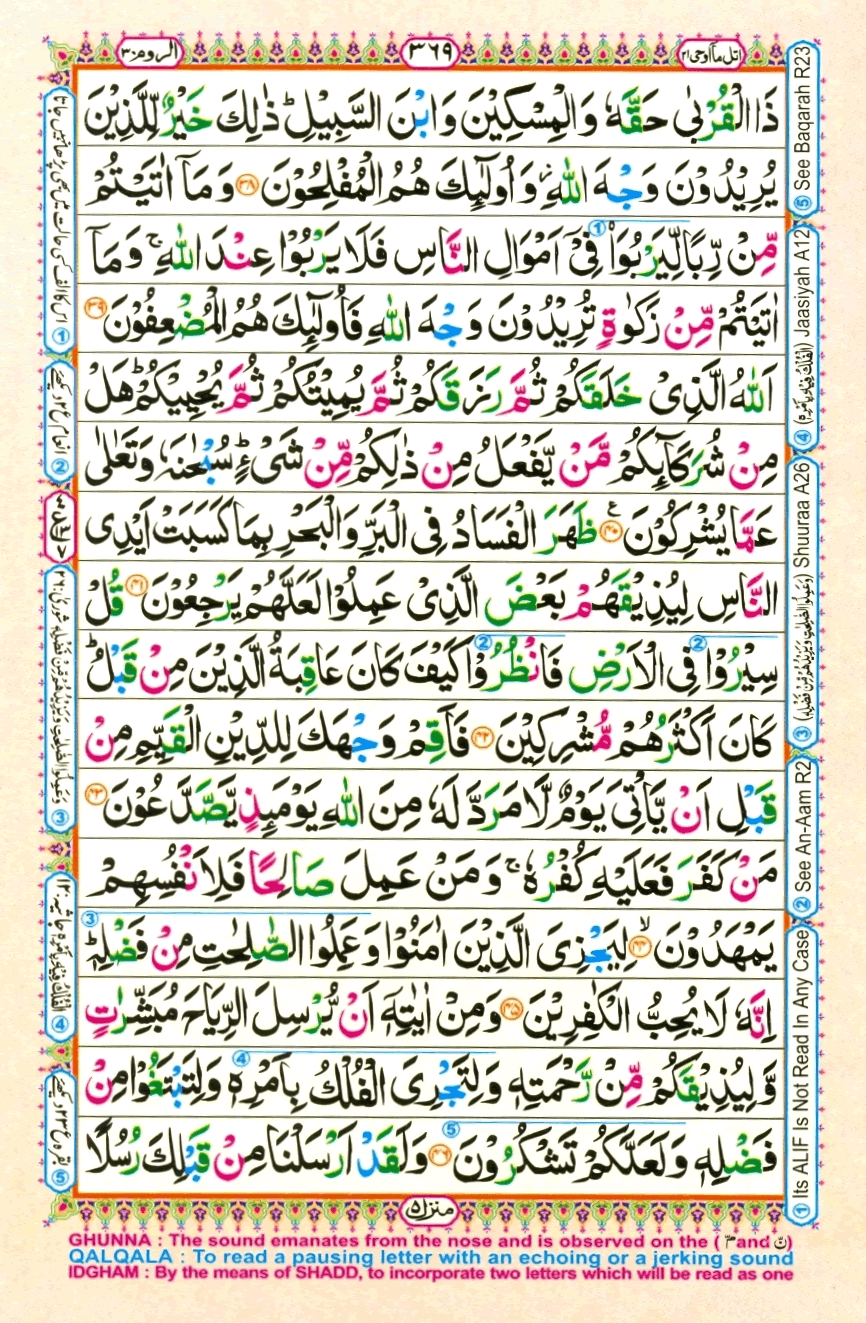 اتل مآ اوحی ۲۱
۳۶۹
الروم ۳۰
ذَا الْقُرْبٰى حَقَّهٗ وَالْمِسْكِيْنَ وَابْنَ السَّبِيْلِ ؕ ذٰلِكَ خَيْرٌ لِّلَّذِيْنَ
يُرِيْدُوْنَ وَجْهَ اللّٰهِ ۫ وَاُولٰٓئِكَ هُمُ الْمُفْلِحُوْنَ ﴿۳۸﴾ وَمَاۤ اٰتَيْتُمْ
مِّنْ رِّبًا لِّيَرْبُوَا۟ ① فِيْۤ اَمْوَالِ النَّاسِ فَلَا يَرْبُوْا عِنْدَ اللّٰهِ ۚ وَمَاۤ
اٰتَيْتُمْ مِّنْ زَكٰوةٍ تُرِيْدُوْنَ وَجْهَ اللّٰهِ فَاُولٰٓئِكَ هُمُ الْمُضْعِفُوْنَ ﴿۳۹﴾
اَللّٰهُ الَّذِيْ خَلَقَكُمْ ثُمَّ رَزَقَكُمْ ثُمَّ يُمِيْتُكُمْ ثُمَّ يُحْيِيْكُمْ ؕ هَلْ
مِنْ شُرَكَآئِكُمْ مَّنْ يَّفْعَلُ مِنْ ذٰلِكُمْ مِّنْ شَيْءٍ ؕ سُبْحٰنَهٗ وَتَعٰلٰى
عَمَّا يُشْرِكُوْنَ ﴿۴۰﴾ ع ظَهَرَ الْفَسَادُ فِي الْبَرِّ وَالْبَحْرِ بِمَا كَسَبَتْ اَيْدِي
النَّاسِ لِيُذِيْقَهُمْ بَعْضَ الَّذِيْ عَمِلُوْا لَعَلَّهُمْ يَرْجِعُوْنَ ﴿۴۱﴾ قُلْ
سِيْرُوْا ② فِي الْاَرْضِ فَانْظُرُوْا ② كَيْفَ كَانَ عَاقِبَةُ الَّذِيْنَ مِنْ قَبْلُ ؕ
كَانَ اَكْثَرُهُمْ مُّشْرِكِيْنَ ﴿۴۲﴾ فَاَقِمْ وَجْهَكَ لِلدِّيْنِ الْقَيِّمِ مِنْ
قَبْلِ اَنْ يَّاْتِيَ يَوْمٌ لَّا مَرَدَّ لَهٗ مِنَ اللّٰهِ يَوْمَئِذٍ يَّصَّدَّعُوْنَ ﴿۴۳﴾
مَنْ كَفَرَ فَعَلَيْهِ كُفْرُهٗ ۚ وَمَنْ عَمِلَ صَالِحًا فَلِاَنْفُسِهِمْ
يَمْهَدُوْنَ ﴿۴۴﴾ ۙ لِيَجْزِيَ الَّذِيْنَ اٰمَنُوْا وَعَمِلُوا الصّٰلِحٰتِ مِنْ فَضْلِهٖ ؕ ③
اِنَّهٗ لَا يُحِبُّ الْكٰفِرِيْنَ ﴿۴۵﴾ وَمِنْ اٰيٰتِهٖۤ اَنْ يُّرْسِلَ الرِّيَاحَ مُبَشِّرٰتٍ
وَّلِيُذِيْقَكُمْ مِّنْ رَّحْمَتِهٖ وَلِتَجْرِيَ الْفُلْكُ بِاَمْرِهٖ ④ وَلِتَبْتَغُوْا مِنْ
فَضْلِهٖ وَلَعَلَّكُمْ تَشْكُرُوْنَ ﴿۴۶﴾ ⑤ وَلَقَدْ اَرْسَلْنَا مِنْ قَبْلِكَ رُسُلًا
منزل ۵
① Its ALIF Is Not Read In Any Case
② See An-Aam R2
③ (وَعَمِلُوا الصّٰلِحٰتِ وَيَزِيْدُهُمْ مِّنْ فَضْلِهٖ) Shuuraa A26
④ (الْفُلْكُ فِيْهِ بِاَمْرِهٖ) Jaasiyah A12
⑤ See Baqarah R23
① اس کا الف کسی حالت میں بھی پڑھا نہیں جاتا
② انعام ع ۲ دیکھئے
③ وَعَمِلُوا الصّٰلِحٰتِ وَيَزِيْدُهُمْ مِّنْ فَضْلِهٖ شوریٰ: ۲۶
④ الْفُلْكُ فِيْهِ بِاَمْرِهٖ جاثیہ: ۱۲
⑤ بقرہ ع ۲۳ دیکھئے
GHUNNA : The sound emanates from the nose and is observed on the ( مّ and نّ )
QALQALA : To read a pausing letter with an echoing or a jerking sound
IDGHAM : By the means of SHADD, to incorporate two letters which will be read as one